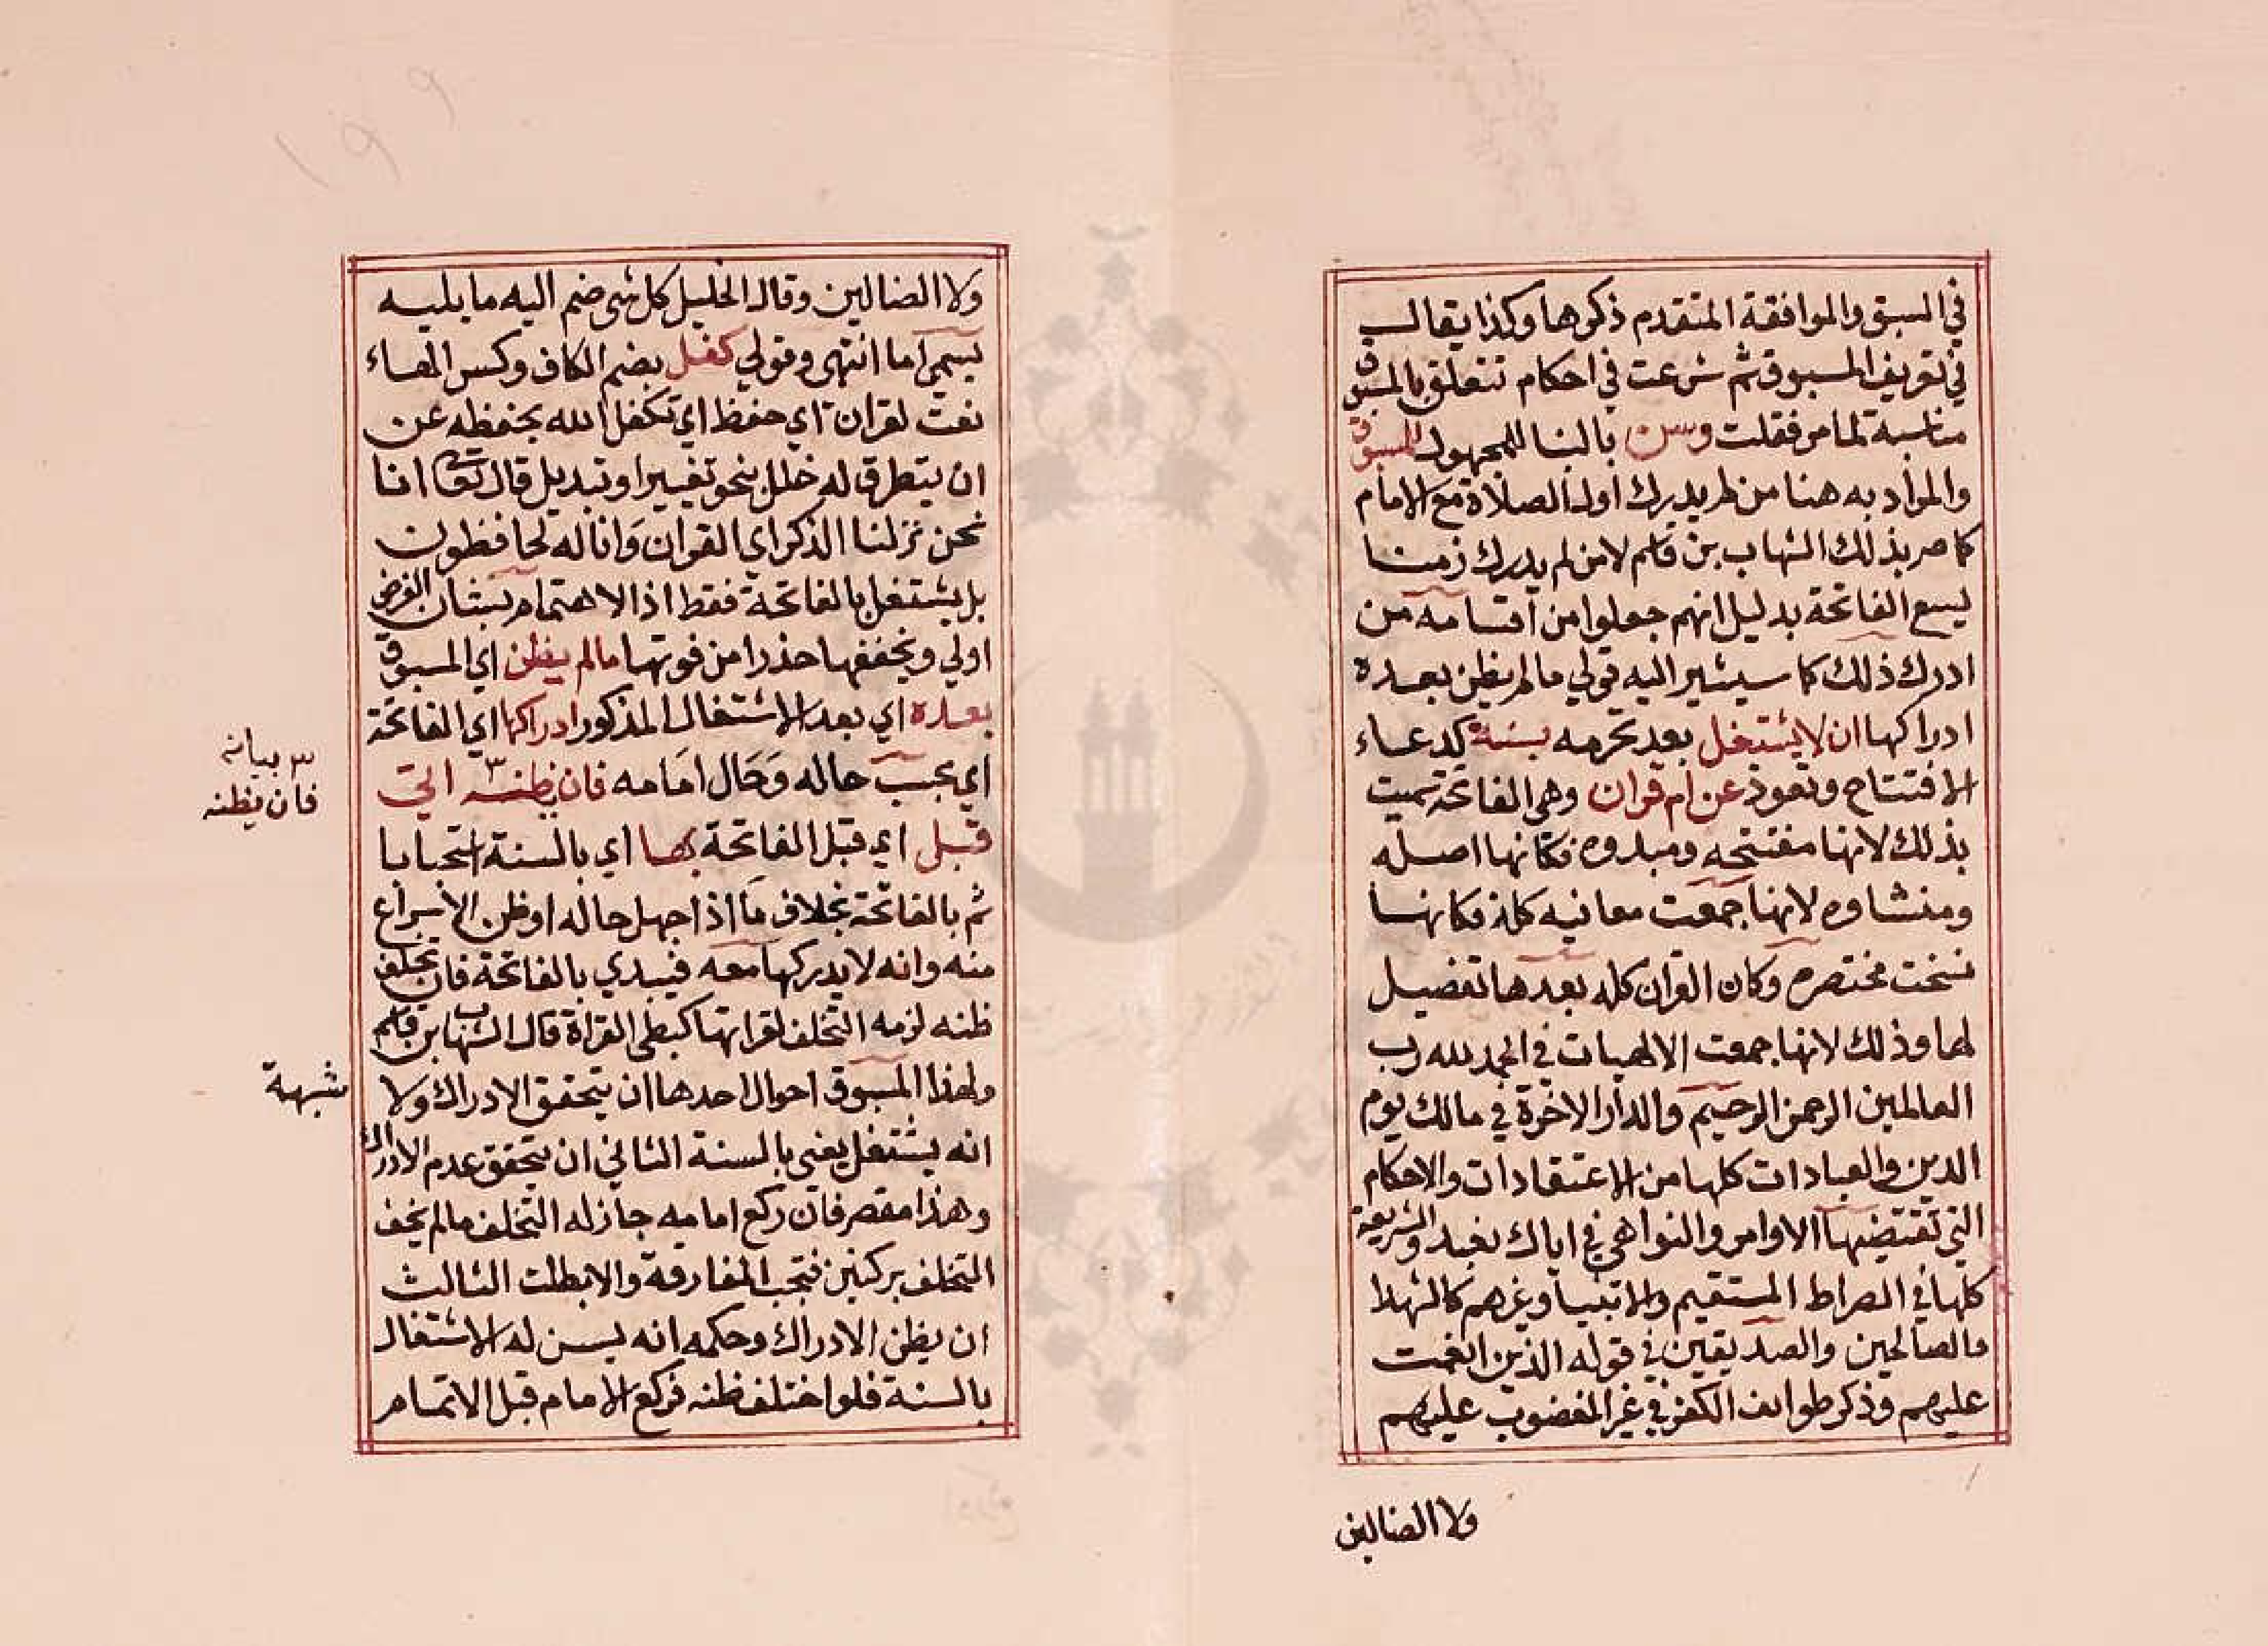 في السبق والموافقة المتقدم ذكرها وكذا يقال
في تعريف المسبوق ثم شرعت في احكام تتعلق بالمسبوق
مناسبة لما مر فقلت وسن بالبنا للمجهول للمسبوق
والمراد به هنا من لم يدرك اول الصلاة مع الامام
كما صر بذلك الشهاب بن قاسم لا من لم يدرك زمنا
ليسع الفاتحة بدليل انهم جعلوا من اقسامه من
ادرك ذلك كما سيشير اليه قولي ما لم يظن بعده
ادراكها ان لا يشتغل بعد تحرمه بسنة كدعاء
الافتتاح وتعوذ عن ام قران وهي الفاتحة سميت
بذلك لانها مفتتحه ومبدوه فكانها اصله
ومنشاوه لانها جمعت معانيه كلها فكانها
نسخت مختصره وكان القران كله بعدها تفصيل
لها وذلك لانها جمعت الالهيات في الحمد لله رب
العالمين الرحمن الرحيم والدار الاخرة في مالك يوم
الدين والعبادات كلها من الاعتقادات والاحكام
التي تقتضيها الاوامر والنواهي في اياك نعبد والشريعة
كلها في الصراط المستقيم والانبيا وغيرهم كالشهدا
والصالحين والصديقين في قوله الذين انعمت
عليهم وذكر طوايف الكفر في غير المغضوب عليهم
ولا الضالين
ولا الضالين وقال الخليل كل شي ضم اليه ما يليه
يسمي اما انتهى وقولي كفل بضم الكاف وكسر الفاء
نعت لقران اي حفظ اي تكفل الله بحفظه عن
ان يتطرق له خلل بنحو تغيير او تبديل قال تعا انا
نحن نزلنا الذكر اي القران وانا له لحافظون
بل يشتغل بالفاتحة فقط اذ الاهتمام بشان الفرض
اولي ويخففها حذرا من فوتها ما لم يظن اي المسبوق
بعده اي بعد الاشتغال المذكور ادراكها اي الفاتحة
اي بحسب حاله وحال امامه فان يظنه ٣ اتي
قبل اي قبل الفاتحة بها اي بالسنة استحبابا
ثم بالفاتحة بخلاف ما اذا جهل حاله او ظن الاسراع
منه وانه لا يدركها معه فيبدي بالفاتحة فان تخلف
ظنه لزمه التخلف لقراتها كبطي القراة قال الشهاب بن قاسم
ولهذا المسبوق احوال احدها ان يتحقق الادراك ولا
انه يشتغل يعني بالسنة الثاني ان يتحقق عدم الادراك
وهذا مقصر فان ركع امامه جاز له التخلف ما لم يخف
التخلف بركنين فتجب المفارقة والا بطلت الثالث
ان يظن الادراك وحكمه انه يسن له الاشتغال
بالسنة فلو اختلف ظنه فركع الامام قبل الاتمام
٣ بيانه
فان يظنه
شبهة